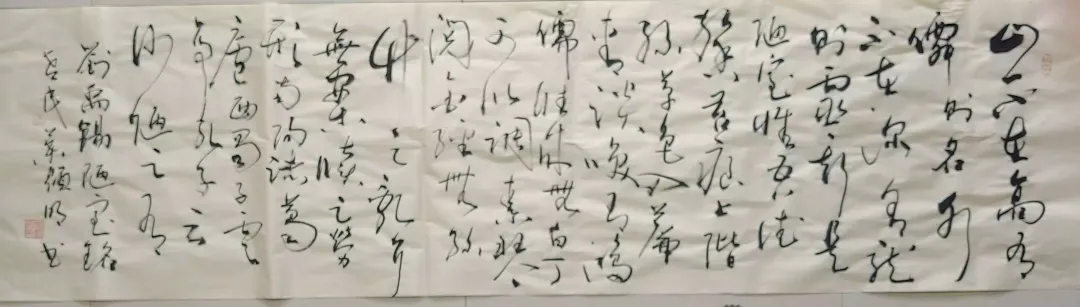 山不在高有
僊則名水
不在深有龍
則靈斯是
陋室惟吾德
馨苔痕上階
綠草色入簾
青談笑有鴻
儒往來無白丁
可以調素琴
閱金經無絲
竹之亂耳
無案牘之勞
形南陽諸葛
廬西蜀子雲
亭孔子云
何陋之有
劉禹錫陋室銘
明書